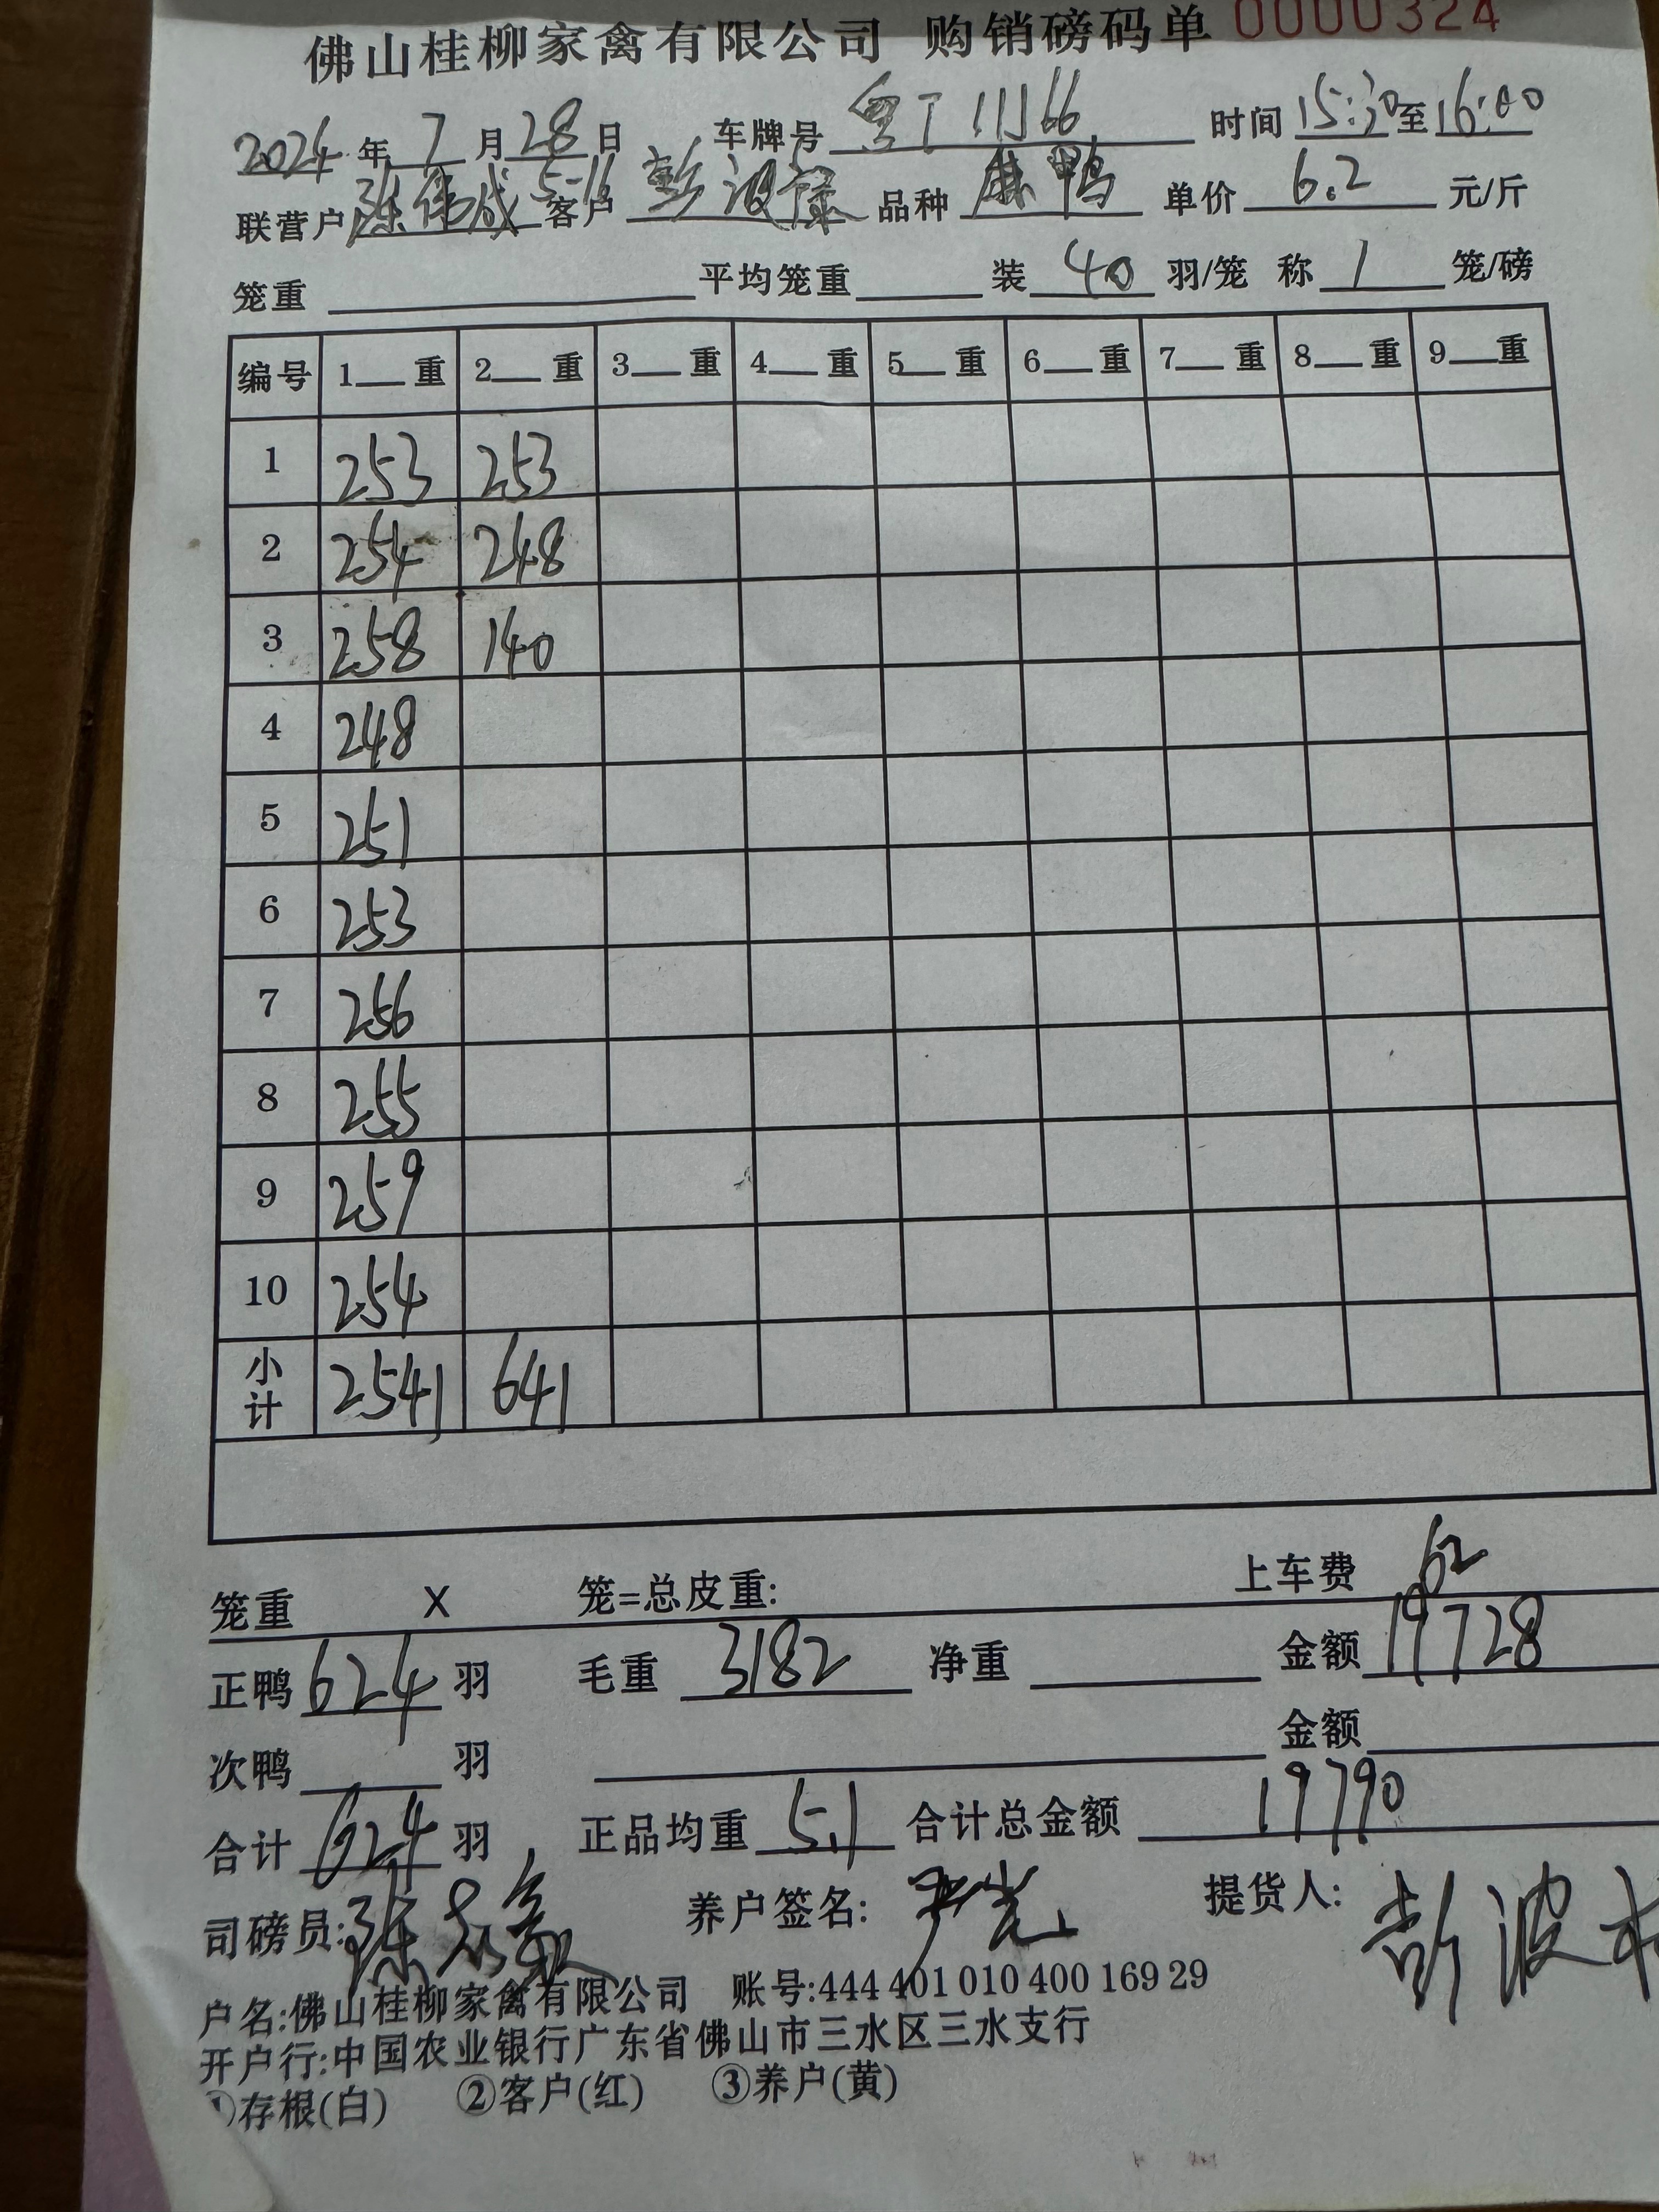 佛山桂柳家禽有限公司 购销磅码单 0000324
2024 年 7 月 28 日 车牌号 粤 11166 时间 15:30 至 16:00
联营户 陈伟成 5-16 客户 彭波 品种 麻鸭 单价 6.2 元/斤
笼重 平均笼重 装 40 羽/笼 称 1 笼/磅
编号 1 重 2 重 3 重 4 重 5 重 6 重 7 重 8 重 9 重
1 253 253
2 254 248
3 258 140
4 248
5 251
6 253
7 256
8 255
9 259
10 254
小计 2541 641
笼重 X 笼=总皮重: 上车费 62
正鸭 624 羽 毛重 3182 净重 金额 19728
次鸭 羽 金额
合计 624 羽 正品均重 5.1 合计总金额 19790
司磅员: 陈 养户签名: 提货人: 彭波
户名:佛山桂柳家禽有限公司 账号:444 401 010 400 169 29
开户行:中国农业银行广东省佛山市三水区三水支行
①存根(白) ②客户(红) ③养户(黄)